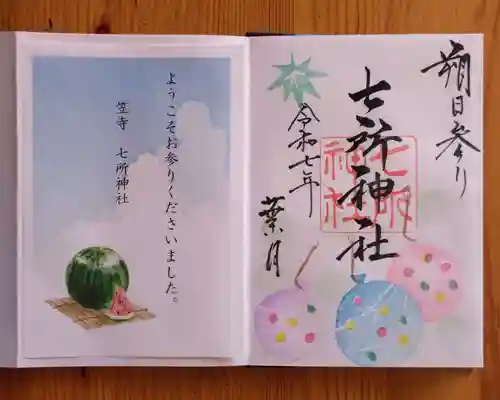 ようこそお参りくださいました。
笠寺 七所神社
朔日参り
七所神社
七所神社
令和七年
葉月